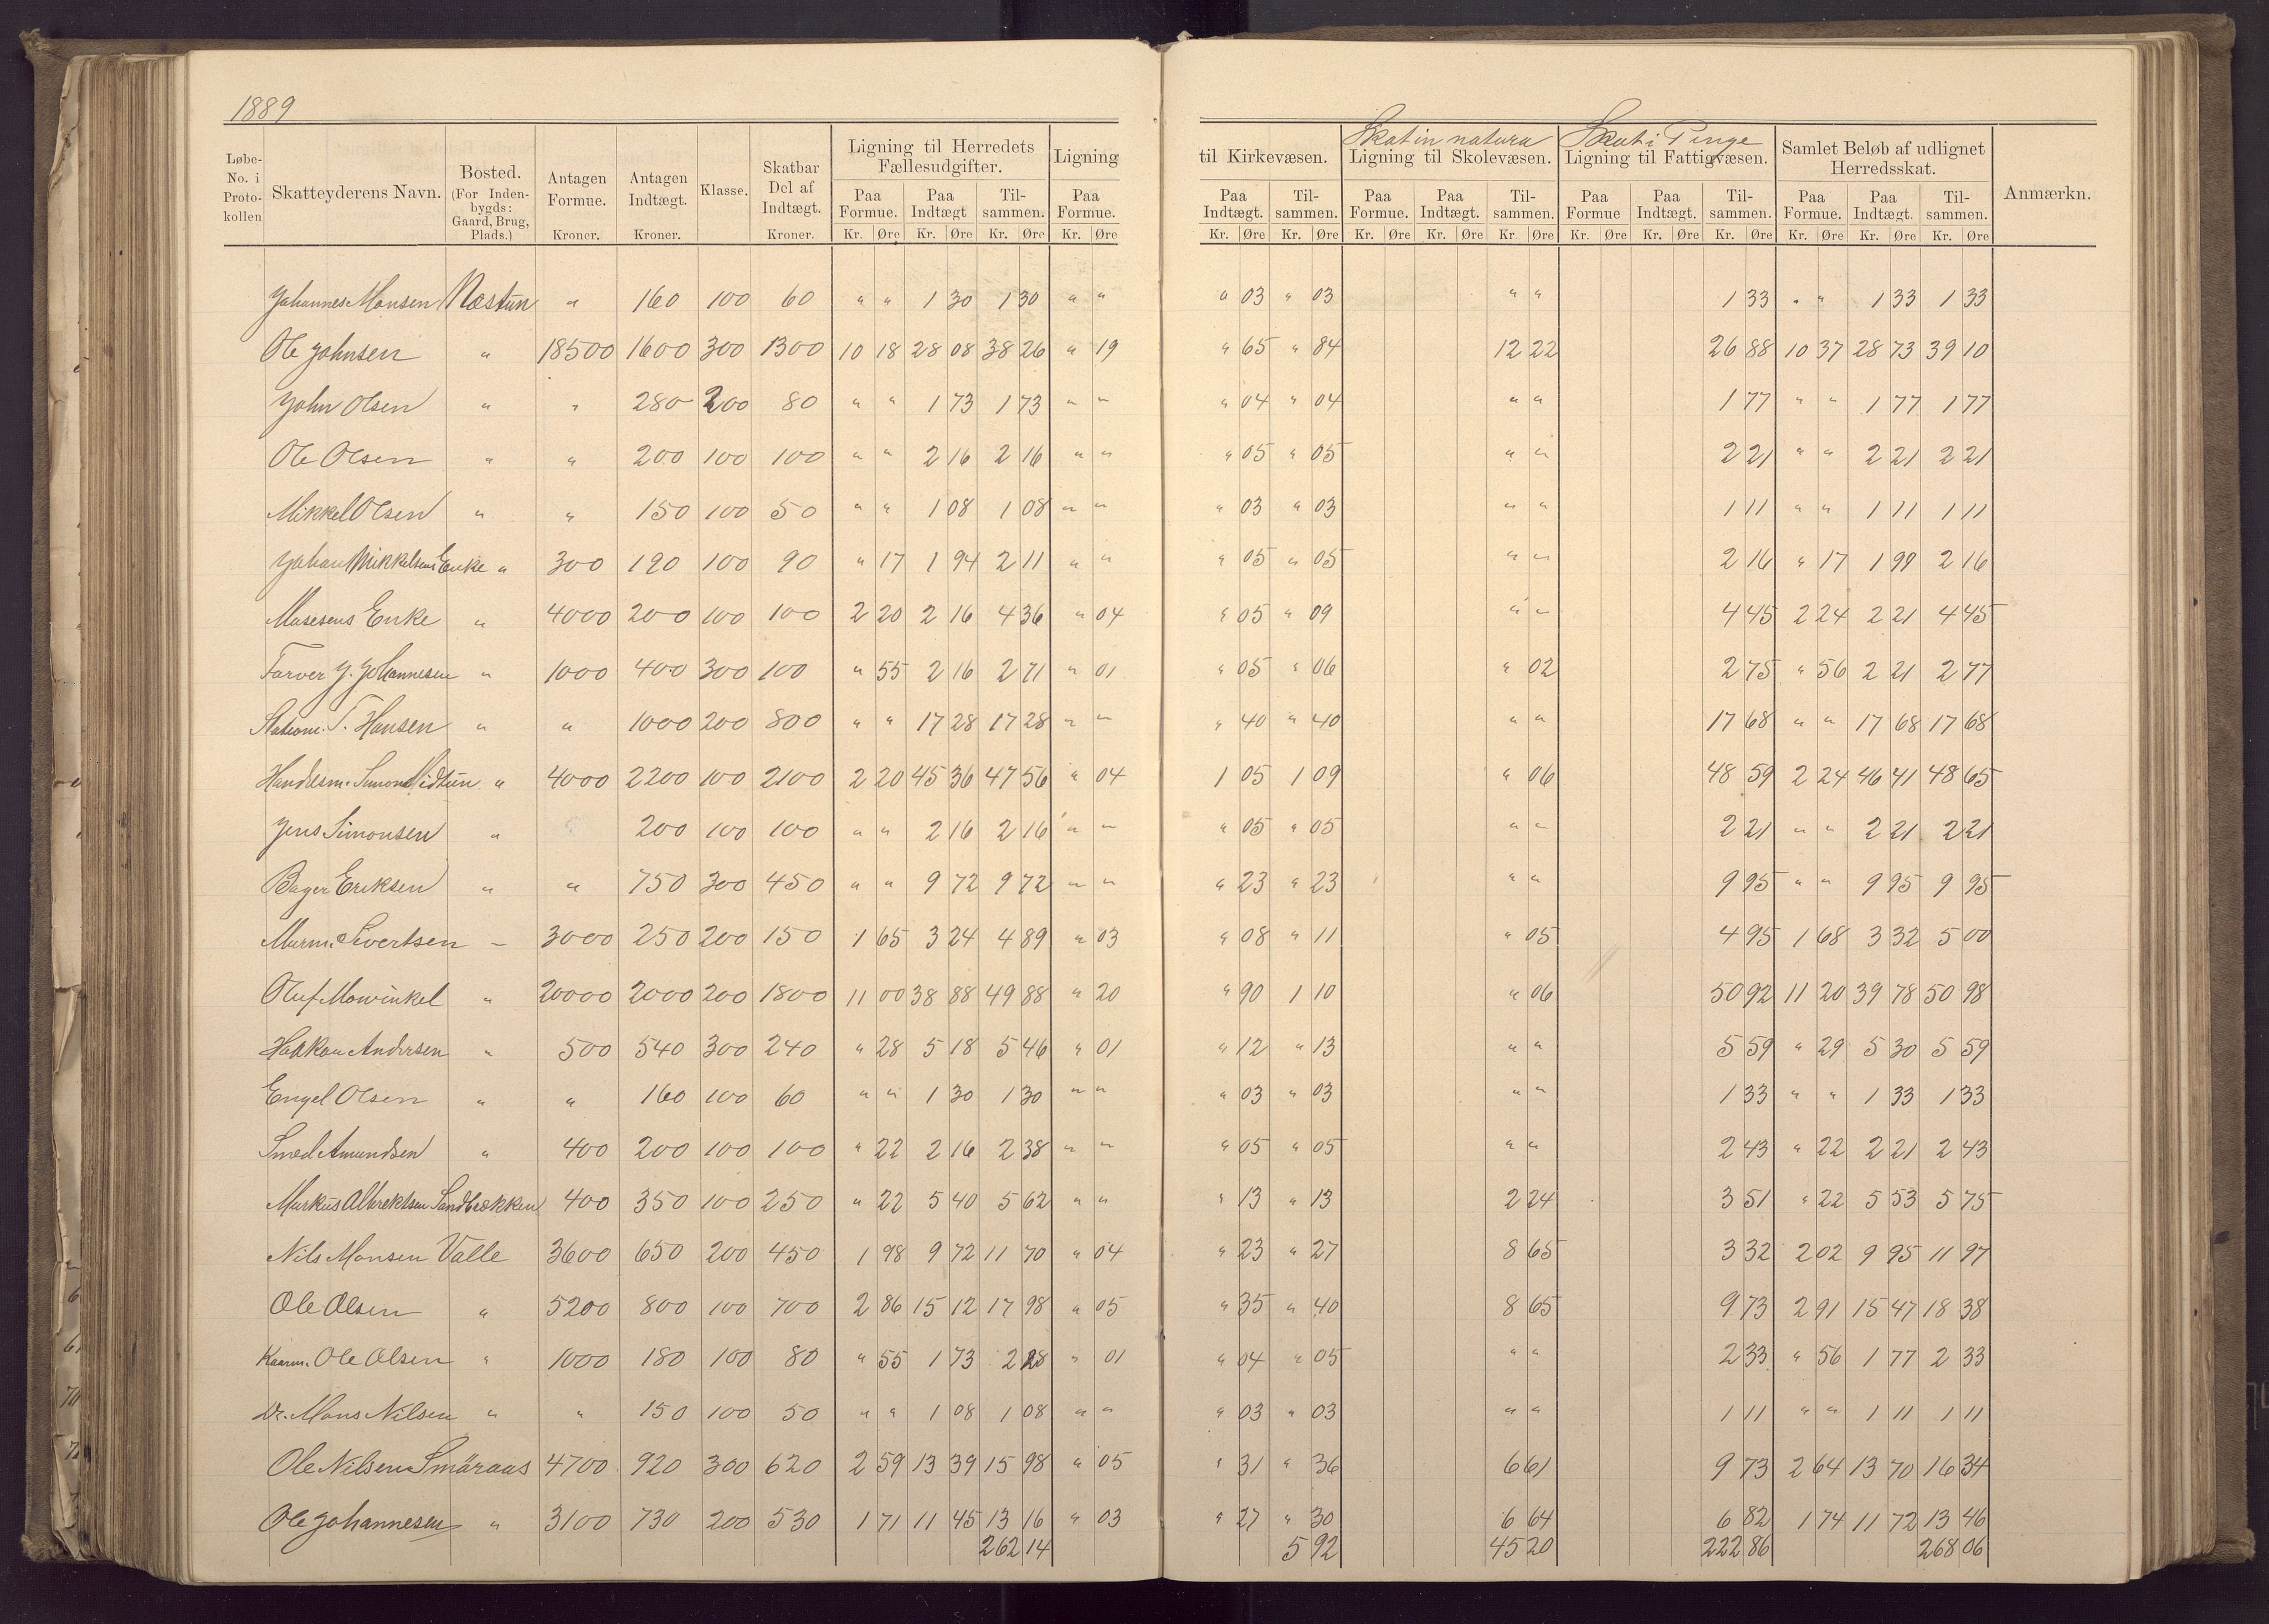 1889
Skat in natura Skat i Penge
Løbe-No. i Protokollen Skatteyderens Navn. Bosted. (For Indenbygds: Gaard, Brug, Plads.) Antagen Formue. Kroner. Antagen Indtægt. Kroner. Klasse. Skatbar Del af Indtægt. Kroner. Ligning til Herredets Fællesudgifter. Paa Formue. Kr. Øre Paa Indtægt Kr. Øre Tilsammen. Kr. Øre Ligning Paa Formue. Kr. Øre til Kirkevæsen. Paa Indtægt. Kr. Øre Tilsammen. Kr. Øre Ligning til Skolevæsen. Paa Formue. Kr. Øre Paa Indtægt. Kr. Øre Tilsammen. Kr Øre Ligning til Fattigvæsen. Paa Formue Kr. Øre Paa Indtægt. Kr. Øre Tilsammen. Kr. Øre Samlet Beløb af udlignet Herredsskat. Paa Formue. Kr. Øre Paa Indtægt. Kr. Øre Tilsammen. Kr. Øre Anmærkn.
Johannes Monsen Nostun " 160 100 60 " " 1 30 1 30 " " " 03 " 03 " " 1 33 " " 1 33 1 33
Ole Johnsen " 18500 1600 300 1300 10 18 28 08 38 26 " 19 " 65 " 84 12 22 26 88 10 37 28 73 39 10
John Olsen " " 280 200 80 " " 1 73 1 73 " " " 04 " 04 " " 1 77 " " 1 77 1 77
Ole Olsen " " 200 100 100 " " 2 16 2 16 " " " 05 " 05 " " 2 21 " " 2 21 2 21
Mikkel Olsen " " 150 100 50 " " 1 08 1 08 " " " 03 " 03 " " 1 11 " " 1 11 1 11
Johan Mikkelsens Enke " 300 190 100 90 " 17 1 94 2 11 " " " 05 " 05 " " 2 16 " 17 1 99 2 16
Mosesens Enke " 4000 200 100 100 2 20 2 16 4 36 " 04 " 05 " 09 " " 4 45 2 24 2 21 4 45
Farver J. Johannesen " 1000 400 300 100 " 55 2 16 2 71 " 01 " 05 " 06 " 02 2 75 " 56 2 21 2 77
Stationi. T. Hansen " " 1000 200 800 " " 17 28 17 28 " " " 40 " 40 " " 17 68 " " 17 68 17 68
Handlesm. Simon Midtun " 4000 2200 100 2100 2 20 45 36 47 56 " 04 1 05 1 09 " 06 48 59 2 24 46 41 48 65
Jens Simonsen " 200 100 100 " " 2 16 2 16 " " " 05 " 05 " " 2 21 " " 2 21 2 21
Bager Eriksen " " 750 300 450 " " 9 72 9 72 " " " 23 " 23 " " 9 95 " " 9 95 9 95
Murm. Sivertsen – 3000 250 200 150 1 65 3 24 4 89 " 03 " 08 " 11 " 05 4 95 1 68 3 32 5 00
Oluf Mowinkel " 20000 2000 200 1800 11 00 38 88 49 88 " 20 " 90 1 10 " 06 50 92 11 20 39 78 50 98
Haakon Andersen " 500 540 300 240 " 28 5 18 5 46 " 01 " 12 " 13 " " 5 59 " 29 5 30 5 59
Engel Olsen " " 160 100 60 " " 1 30 1 30 " " " 03 " 03 " " 1 33 " " 1 33 1 33
Smed Amundsen " 400 200 100 100 " 22 2 16 2 38 " " " 05 " 05 " " 2 43 " 22 2 21 2 43
Markus Albrektsen Sandbrekken 400 350 100 250 " 22 5 40 5 62 " " " 13 " 13 2 24 3 51 " 22 5 53 5 75
Nils Monsen Valle 3600 650 200 450 1 98 9 72 11 70 " 04 " 23 " 27 8 65 3 32 2 02 9 95 11 97
Ole Olsen " 5200 800 100 700 2 86 15 12 17 98 " 05 " 35 " 40 8 65 9 73 2 91 15 47 18 38
Kaarm. Ole Olsen " 1000 180 100 80 " 55 1 73 2 28 " 01 " 04 " 05 " " 2 33 " 56 1 77 2 33
Dr. Mons Nilsen " " 150 100 50 " " 1 08 1 08 " " " 03 " 03 " " 1 11 " " 1 11 1 11
Ole Nilsen Smöraas 4700 920 300 620 2 59 13 39 15 98 " 05 " 31 " 36 6 61 9 73 2 64 13 70 16 34
Ole Johannesen " 3100 730 200 530 1 71 11 45 13 16 " 03 " 27 " 30 6 64 6 82 1 74 11 72 13 46
262 14 5 92 45 20 222 86 268 06